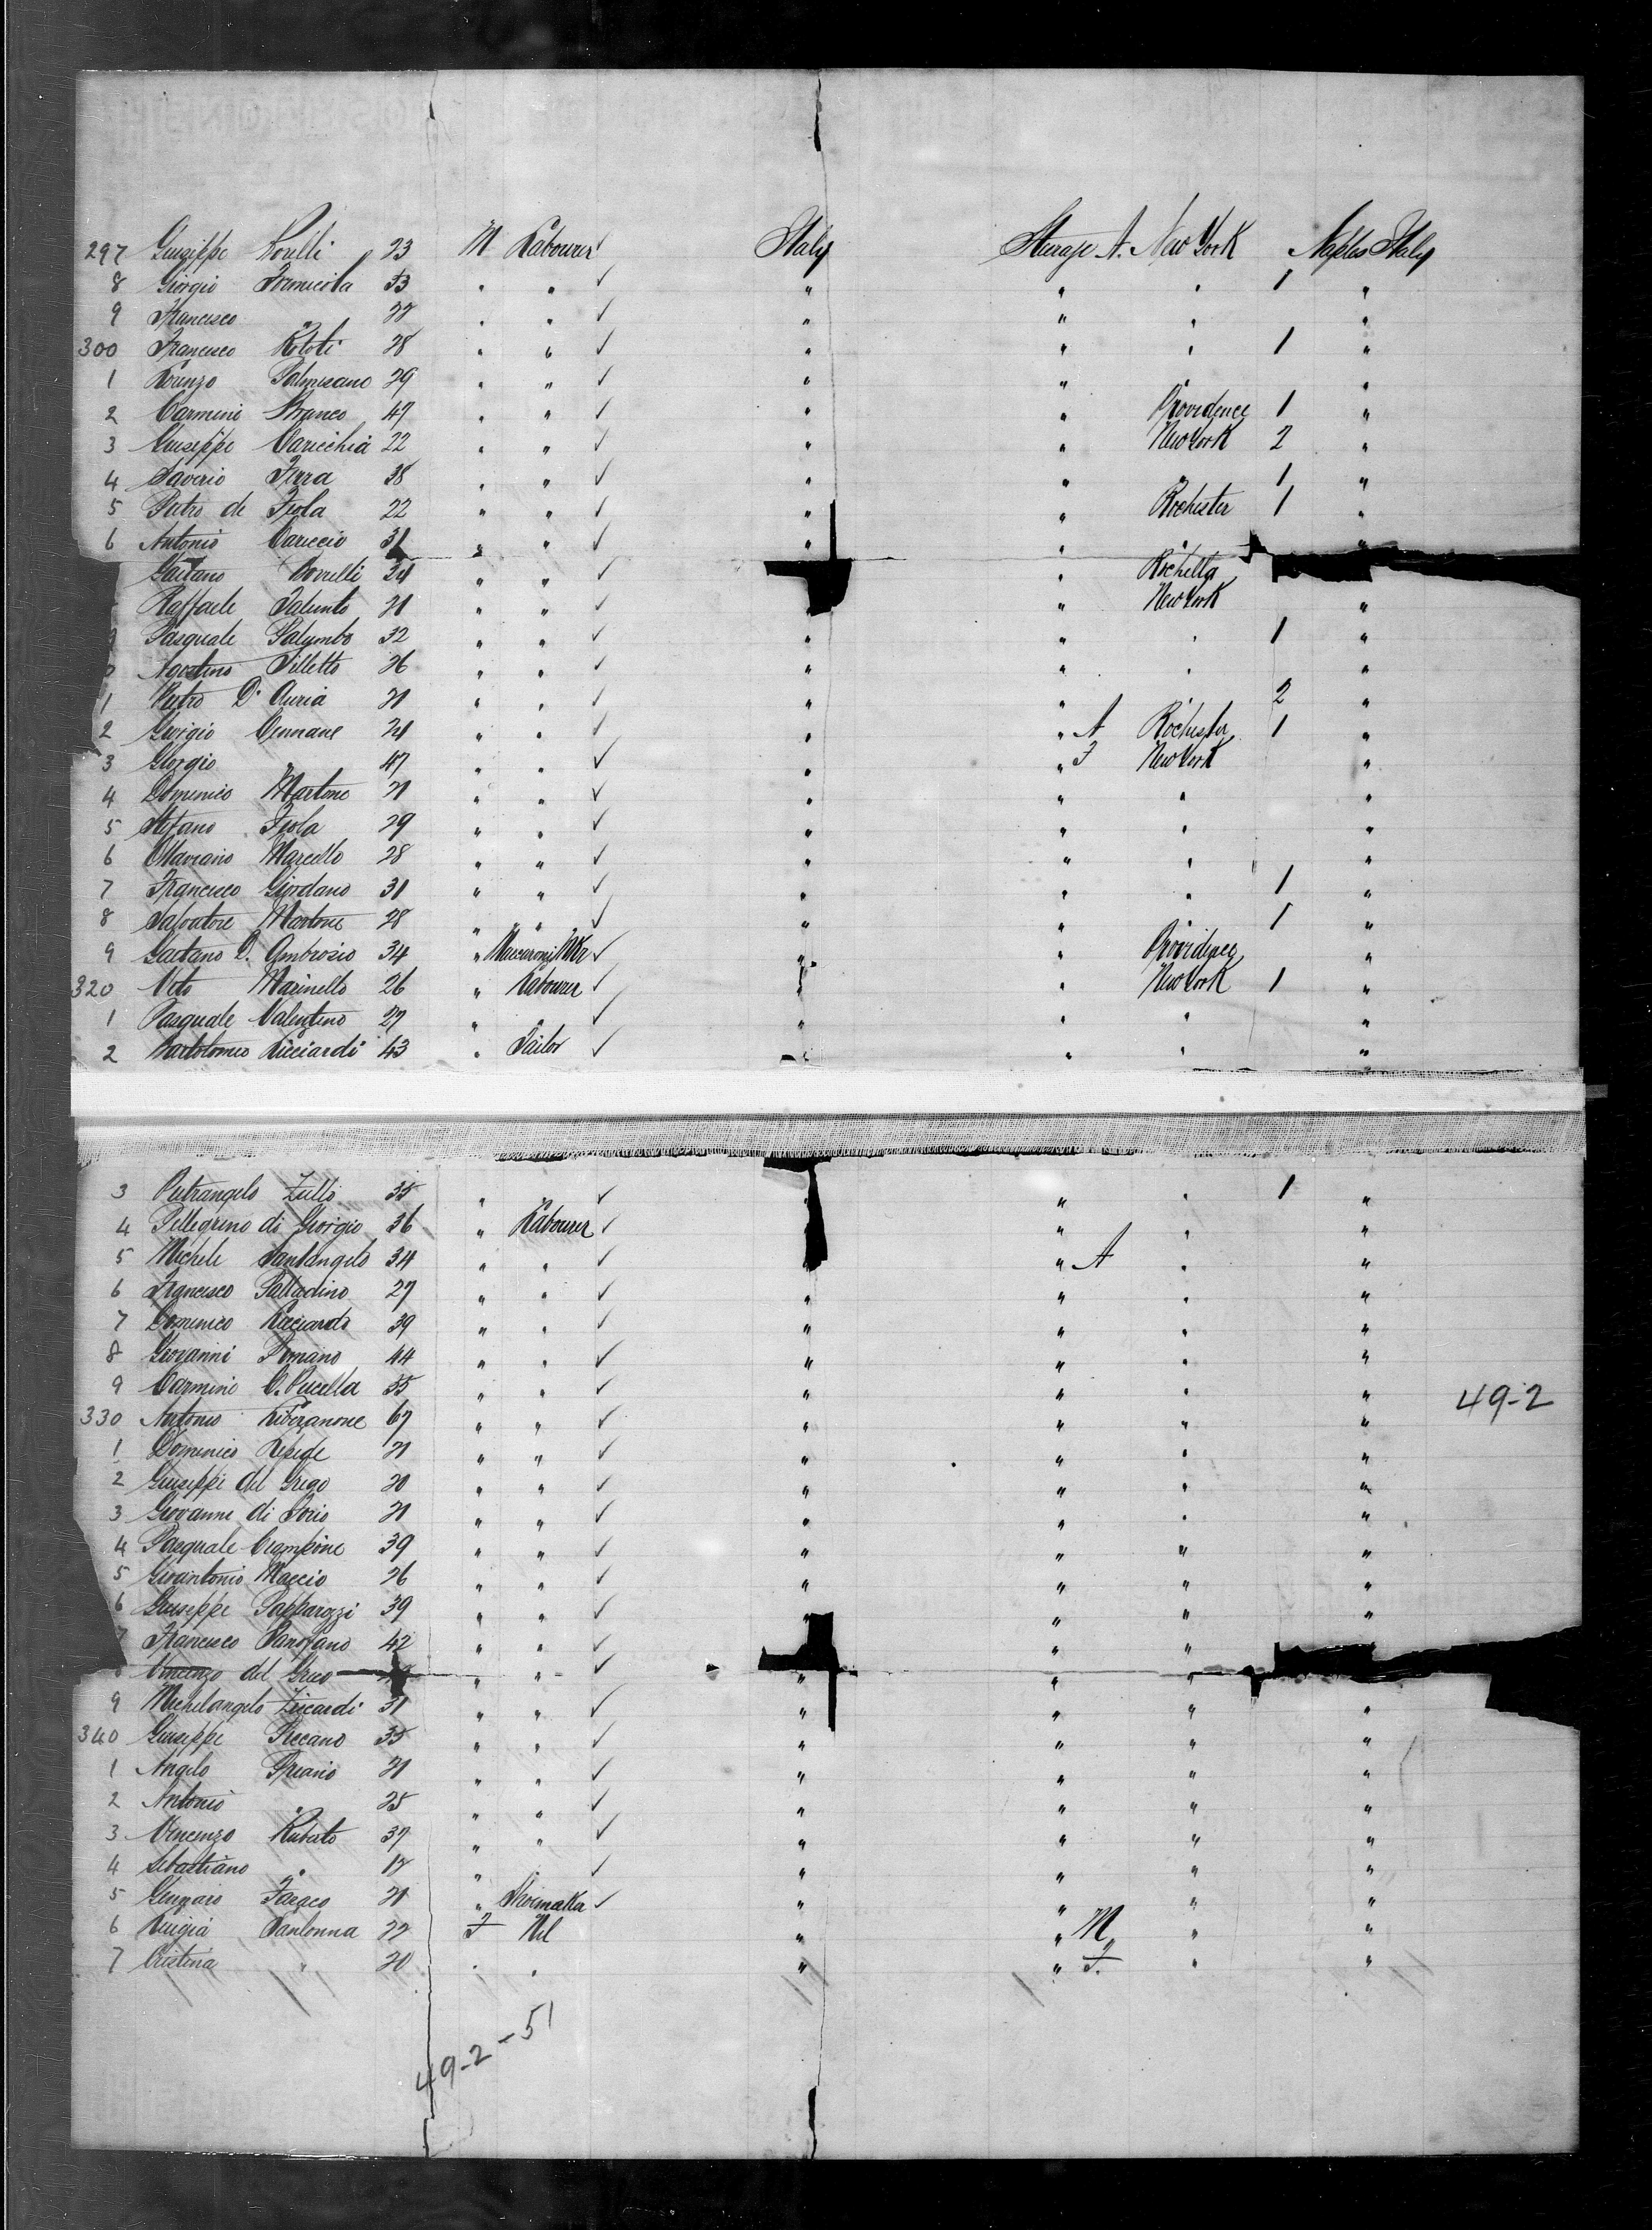 297 Giuseppe 23 M Labourer ✓ Italy Steerage A. New York Naples Italy
8 Giorgio Formicola 33 " " ✓ " " " 1 "
9 Francesco " 22 " " ✓ " " " "
300 Francesco Rototi 28 " " ✓ " " " 1 "
1 Palmisano 29 " " ✓ " " " "
2 Carmine Branco 47 " " ✓ " " Providence 1 "
3 Giuseppe Caricchia 22 " " ✓ " " New York 2 "
4 Saverio Ferra 38 " " ✓ " " " 1 "
5 Pietro de Isola 22 " " ✓ " " Rochester 1 "
6 Antonio Cariccio 31 " " ✓ " " " "
Gaetano Borrelli 24 " " ✓ " Rochella
Raffaele 21 " " ✓ " " New York "
Pasquale Palumbo 32 " " ✓ " " " 1 "
Agostino Pilletto 26 " " ✓ " " " "
1 Pietro D'Auria 21 " " ✓ " " " 2 "
2 Giorgio Cennane 24 " " ✓ " " A Rochester 1 "
3 Giorgio " 47 " " ✓ " " F New York "
4 Domenico Martone 21 " " ✓ " " " "
5 Stefano Isola 29 " " ✓ " " " "
6 Ottaviano Marcello 28 " " ✓ " " " "
7 Francesco Giordano 31 " " ✓ " " " 1 "
8 Salvatore Martone 28 " " ✓ " " " 1 "
9 Gaetano D. Ambrosio 34 " Maccaroni Mkr ✓ " " Providence "
320 Vito Marinello 26 " Labourer ✓ " " New York 1 "
1 Pasquale Valentino 27 " " ✓ " " " "
2 Bartolomeo Ricciardi 43 " Tailor ✓ " " " "
3 Pietrangelo Zullo 35 " ✓ " " 1 "
4 Pellegrino di Giorgio 36 " Labourer ✓ " " "
5 Michele Santangelo 34 " " ✓ " " A " "
6 Francesco Palladino 27 " " ✓ " " " "
7 Domenico Ricciardi 39 " " ✓ " " " "
8 Giovanni Romano 44 " " ✓ " " " "
9 Carmine C. Pucella 35 " " ✓ " " " "
49-2
330 Antonio Liberanone 67 " " ✓ " " " "
1 Domenico Lepede 21 " " ✓ " " " "
2 Giuseppe del Grego 20 " " ✓ " " " "
3 Giovanni di Iorio 21 " " ✓ " " " "
4 Pasquale Ciampone 39 " " ✓ " " " "
5 Giovantonio Maccio 26 " " ✓ " " " "
6 Giuseppe Papparozzi 39 " " ✓ " " " "
7 Francesco 42 " " ✓ " " "
8 Vincenzo del Greco " " ✓ " " "
9 Michelangelo Ziccardi 31 " " ✓ " " " "
340 Giuseppe Piccano 35 " " ✓ " " " "
1 Angelo Priano 21 " " ✓ " " " "
2 Antonio " 25 " " ✓ " " " "
3 Vincenzo Ruberto 37 " " ✓ " " " "
4 Sebastiano " 17 " " ✓ " " " "
5 Gennaro 21 " Shoemaker ✓ " " " "
6 Luigia Santonna 22 F Nil " " M " "
7 Cristina " 20 " " " " F. " "
49-2-51